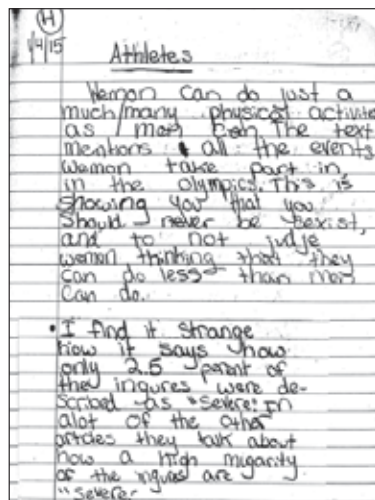 H
1/4/15
Athletes
Women can do just a
much/many physical activite
as men can. The text
mentions all the events
women take part in,
in the olympics. This is
showing you that you
should never be sexist,
and to not judge
women thinking that they
can do less than men
can do.
• I find it strange
how it says how
only 2.5 percent of
the ingures were de-
scribed as "severe". In
alot of the other
articles they talk about
how a high migarity
of the ingures are
"severe"